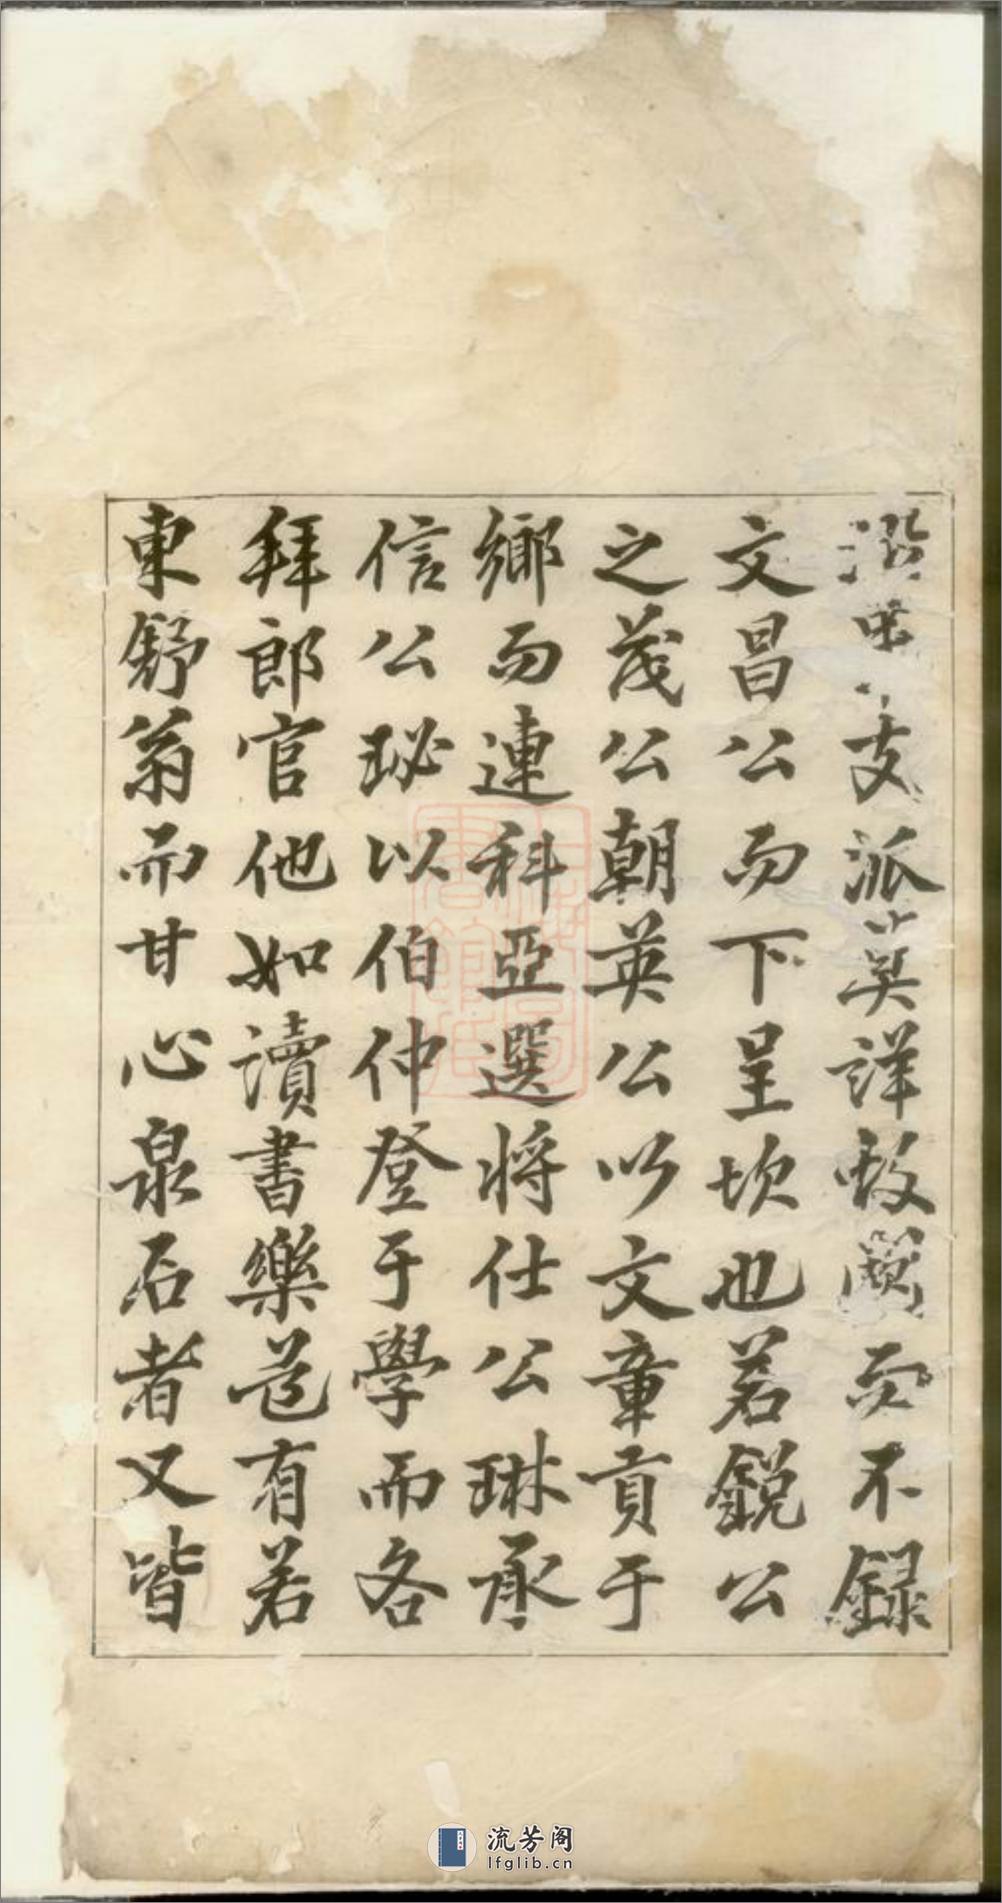 支派莫詳敢闕而不錄
文昌公而下呈坎也若銳公
之茂公朝英公以文章貢于
鄉而連科亞選將仕公琳承
信公珌以伯仲登于學而各
拜郎官他如讀書樂道有若
東舒翁而甘心泉石者又皆
流芳阁
lfglib.cn